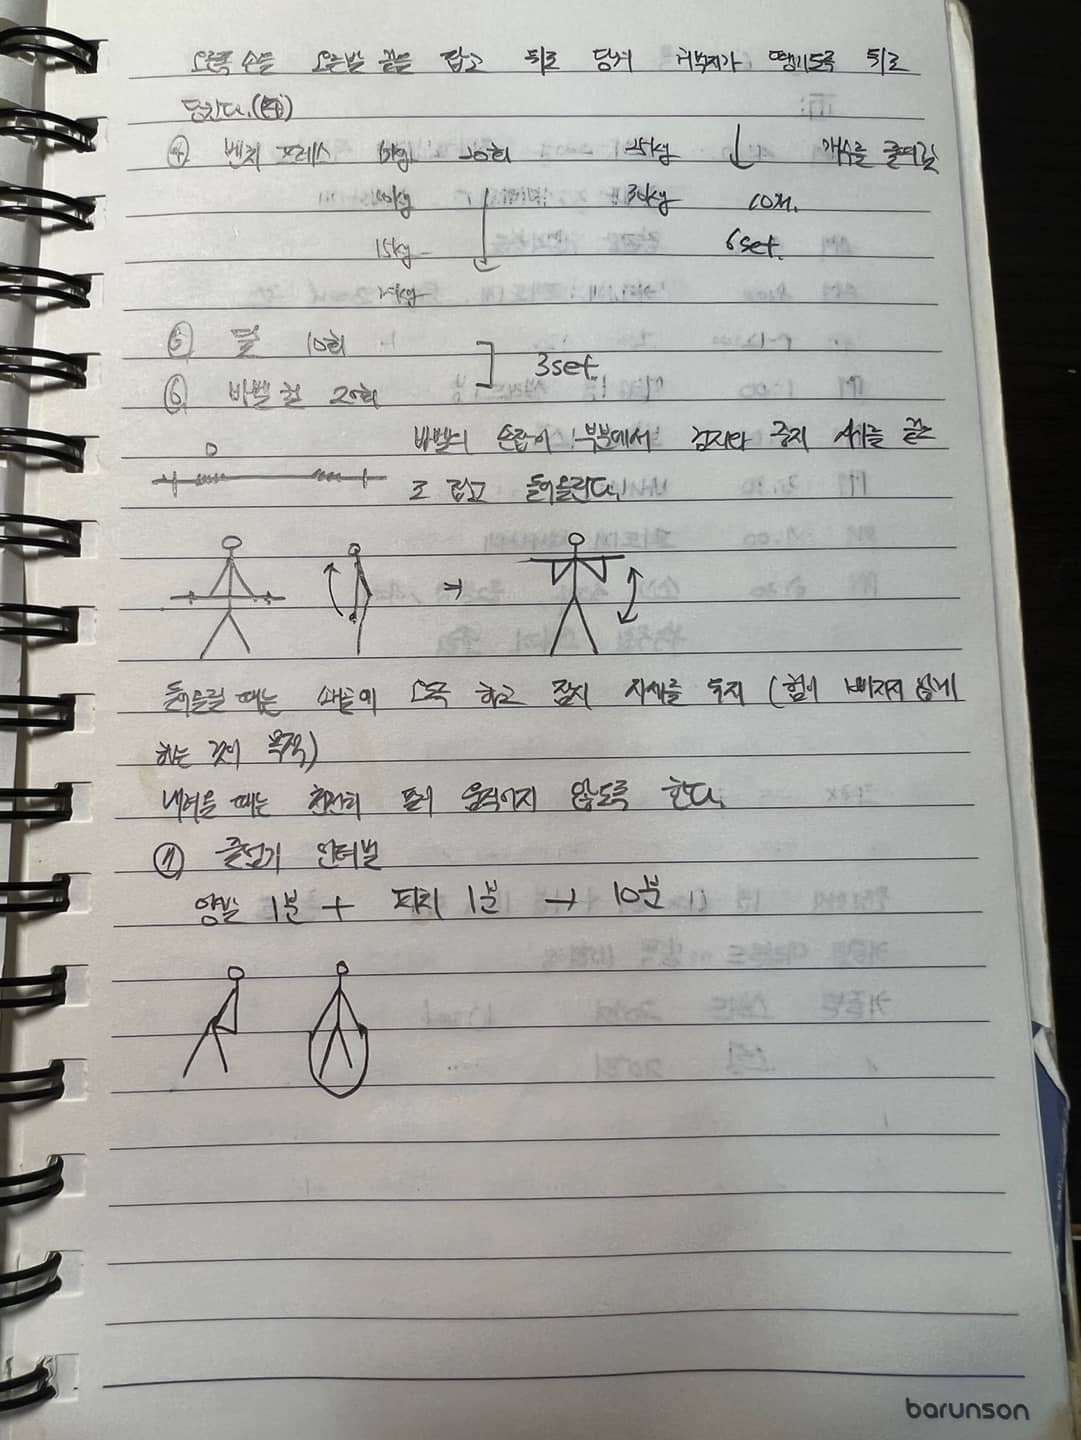 오른쪽 손을 오른발 끝을 잡고 뒤로 당겨 허벅지가 땡기도록 뒤로
당긴다.
④ 벤치 프레스 20회 25kg ↓ 개수를 줄여감
20kg 30kg 10개.
15kg 6set.
⑤ 풀 10회
3set.
⑥ 바벨 컬 20회
바벨의 손잡이 부분에서 검지와 중지 사이를 끝으
로 잡고 들어올린다.
들어올릴 때는 하고 잡지 자세를 두지 (힘이 빠지지 않게
하는 것이 목적)
내려올 때는 천천히 몸이 움직이지 않도록 한다.
⑦ 줄넘기 인터벌
양발 1분 + 피치 1분 → 10분
barunson